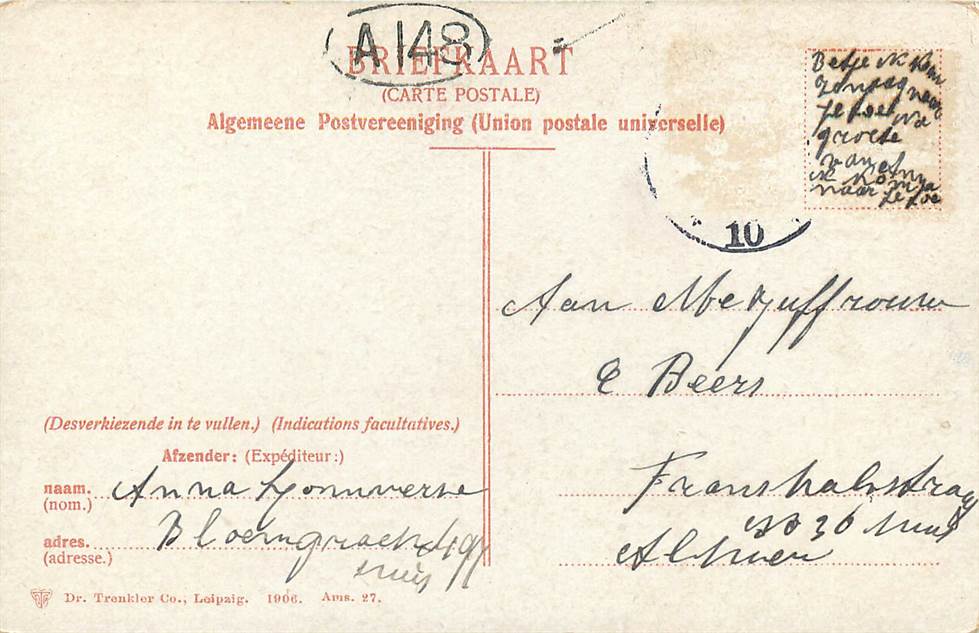 A 148
BRIEFKAART
(CARTE POSTALE)
Algemeene Postvereeniging (Union postale universelle)
Betje ik kom
zondag naar
je toe
groete
van Anna
ik kom
naar je toe
10
Aan Mejuffrouw
E Beers
Franshalsstraat
No 36 huis
Alhier
(Desverkiezende in te vullen.) (Indications facultatives.)
Afzender: (Expéditeur:)
naam. Anna
(nom.)
adres. Bloemgracht
huis
(adresse.)
Dr. Trenkler Co., Leipzig. 1906. Ams. 27.